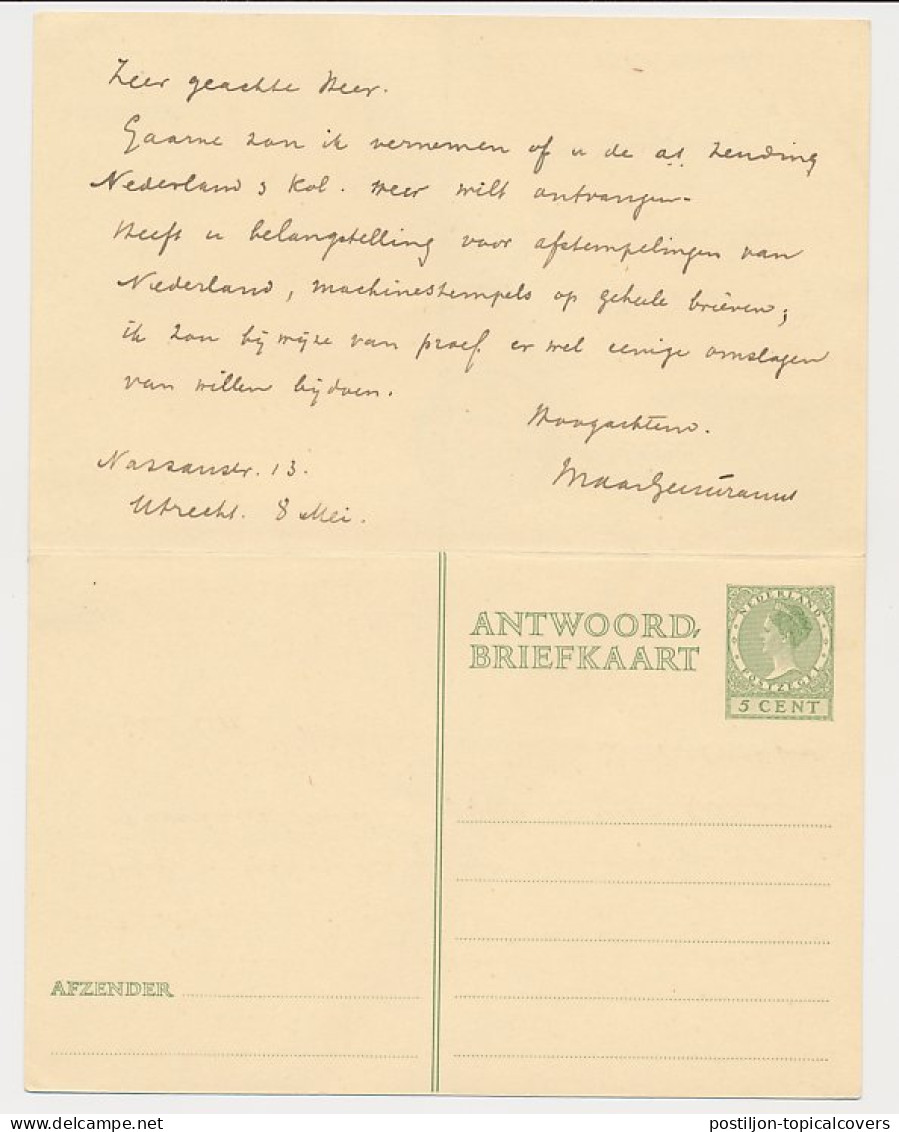 Zeer geachte Heer.
Gaarne zou ik vernemen of u de a.s. zending
Nederland & Kol. weer wilt ontvangen.
Heeft u belangstelling voor afstempelingen van
Nederland, machinestempels op geheele brieven;
ik zou bij wijze van proef er wel eenige omslagen
van willen bijdoen.
Hoogachtend.
Nassaustr. 13.
Utrecht. 8 Mei.
ANTWOORD-
BRIEFKAART
NEDERLAND
POSTZEGEL
5 CENT
AFZENDER
delcampe.net
postiljon-topicalcovers